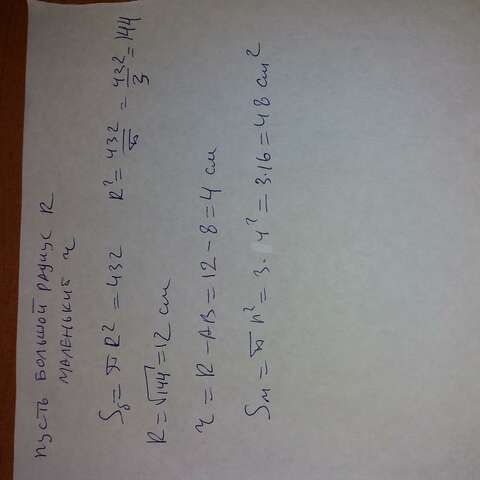 пусть БОЛЬШОЙ РАДИУС R
МАЛЕНЬКИЙ r
Sб = πR² = 432 R² = 432/π = 432/3 = 144
R = √144 = 12 см
r = R - AB = 12 - 8 = 4 см
Sм = πr² = 3 · 4² = 3 · 16 = 48 см²